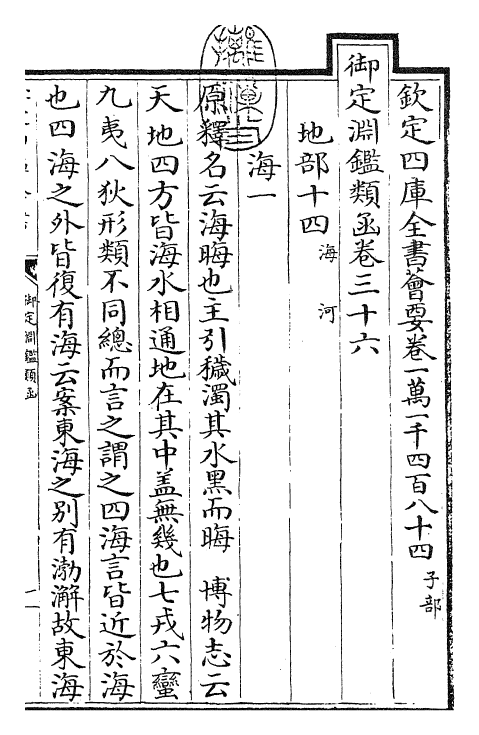 欽定四庫全書薈要卷一萬一千四百八十四 子部
御定淵鑑類函卷三十六
地部十四 海 河
海一
原釋名云海晦也主引穢濁其水黑而晦 博物志云
天地四方皆海水相通地在其中盖無幾也七戎六蠻
九夷八狄形類不同總而言之謂之四海言皆近於海
也四海之外皆復有海云案東海之别有渤澥故東海
御定淵鑑類函